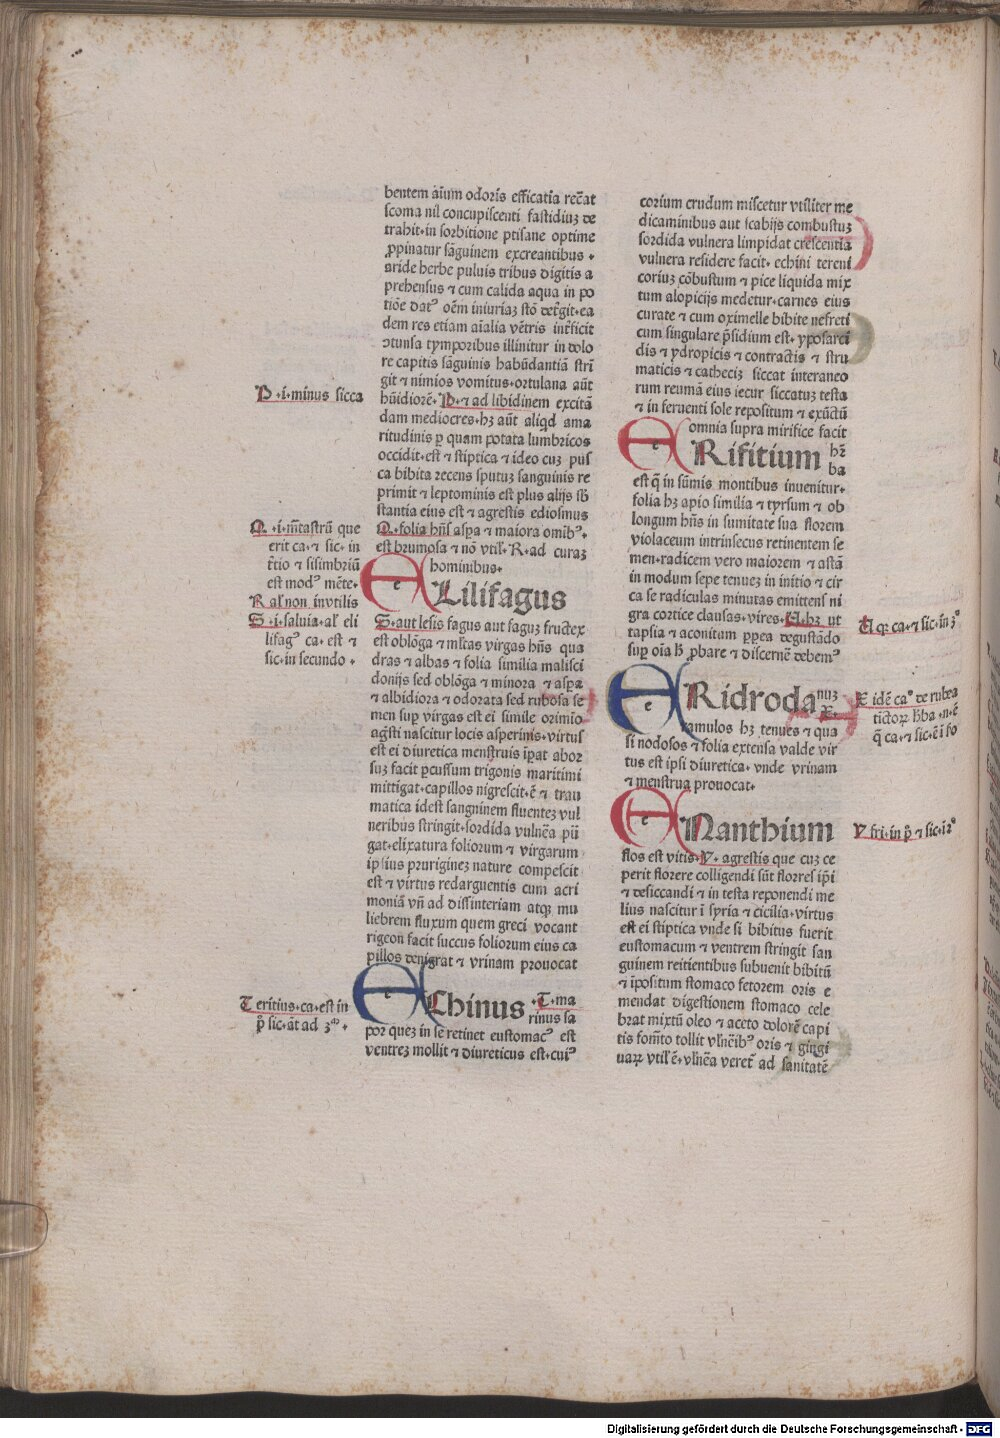 bentem aīum odoris efficatia rec̄at
scoma nil concupiscenti fastidiuʒ de
trahit·in sorbitione ptisane optime
ꝓpinatur sāguinem excreantibus·
aride herbe puluis tribus digitis a
prehensus ⁊ cum calida aqua in po
tiōe datꝰ oēm iniuriaʒ stō det̄git·ea
dem res etiam aīalia vētris int̄ficit
ↄtunsa tymporibus illinitur in dolo
re capitis sāguinis habūdantiā stri̅
git ⁊ nimios vomitus·ortulana aūt
hūidiorē·P·⁊ ad libidinem excitā
dam mediocres·hʒ aūt aliqd ama
ritudinis ꝑ quam potata lumbricos
occidit·est ⁊ stiptica ⁊ ideo cuʒ pus
ca bibita recens sputuʒ sanguinis re
primit ⁊ leptominis est plus alijs sb̄
stantia eius est ⁊ agrestis ediosmus
Q·folia hn̄s aspa ⁊ maiora omib̄ꝰ·
est brumosa ⁊ nō vtil̄·R·ad curaʒ
hominibus·
P·i·minus sicca
Q·i·m̄tastrū que
erit ca·⁊ sic·in
t̄tio ⁊ sisimbriū
est modꝰ mēte·
R al̄ non invtilis
S·i·saluia·al̄ eli
lifagꝰ ca·est ⁊
sic·in secundo·
Elilifagus
S·aut lesis fagus aut faguʒ fructex
est oblōga ⁊ ml̄tas virgas hn̄s qua
dras ⁊ albas ⁊ folia similia malisci
donijs sed oblōga ⁊ minora ⁊ asꝑa
⁊ albidiora ⁊ odorata sed rubosa se
men suꝑ virgas est ei simile orimīo
agsti nascitur locis asperinis·virtus
est ei diuretica menstruis ip̄at abor
suʒ facit ꝑcussum trigonis maritimi
mittigat·capillos nigrescit·ē ⁊ trau
matica idest sangninem fluenteʒ vul
neribus stringit·sordida vulnēa pū
gat·elixatura foliorum ⁊ virgarum
ipsius prurigineʒ nature compescit
est ⁊ virtus redarguentis cum acri
moniā vn̄ ad dissinteriam atqʒ mu
liebrem fluxum quem greci vocant
rigeon facit succus foliorum eius ca
pillos denigrat ⁊ vrinam prouocat
Echinus ·T·ma
rinus sa
por queʒ in se retinet eustomacꝰ est
ventreʒ mollit ⁊ diureticus est·cuiꝰ
Teritius·ca·est in
p̄ sic·āt ad 3
corium crudum miscetur vtiliter me
dicaminibus aut scabijs combustuʒ
sordida vulnera limpidat crescentia
vulnera residere facit·echini tereni
coriuʒ cōbustum ⁊ pice liquida mix
tum alopicijs medetur·carnes eius
curate ⁊ cum oximelle bibite nefreti
cum singulare p̄sidium est·yposarci
dis ⁊ ydropicis ⁊ contractis ⁊ stru
maticis ⁊ catheciʒ siccat interaneo
rum reumā eius iecur siccatuʒ testa
⁊ in feruenti sole repositum ⁊ exūctū
omnia supra mirifice facit
Erifitium hr̄
ba
est q̄ in sūmis montibus inuenitur·
folia hʒ apio similia ⁊ tyrsum ⁊ ob
longum hn̄s in sumitate sua florem
violaceum intrinsecus retinentem se
men·radicem vero maiorem ⁊ astā
in modum sepe tenueʒ in initio ⁊ cir
ca se radiculas minutas emittens ni
gra cortice clausas·vires·U·hʒ ut
tapsia ⁊ aconitum ꝑpea degustādo
suꝑ oīa h̄ ꝓbare ⁊ discernē debemꝰ
U qꝛ ca·⁊ sic·in 3°
Eridroda nuʒ
X·
ramulos hʒ tenues ⁊ qua
si nodosos ⁊ folia extensa valde vir
tus est ipsi diuretica·vnde vrinam
⁊ menstrua prouocat·
X idē caꝰ de rubea
tictoꝝ h̄ba·n·ē
q̄ ca·⁊ sic·ē ī so
Enanthium
flos est vitis·Y·agrestis que cuʒ ce
perit florere colligendi sūt flores ip̄i
⁊ desiccandi ⁊ in testa reponendi me
lius nascitur ī syria ⁊ cicilia·virtus
est ei stiptica vnde si bibitus fuerit
eustomacum ⁊ ventrem stringit san
guinem reitientibus subuenit bibitū
⁊ īpositum stomaco fetorem oris e
mendat digestionem stomaco cele
brat mixtū oleo ⁊ aceto dolorē capi
tis fom̄to tollit vl̄nēibꝰ oris ⁊ gingi
uaꝝ vtil̄ ē·vl̄nēa veret̄ ad sanitatē
Y fri·in p̄ ⁊ sic·ī 2°
Digitalisierung gefördert durch die Deutsche Forschungsgemeinschaft - DFG